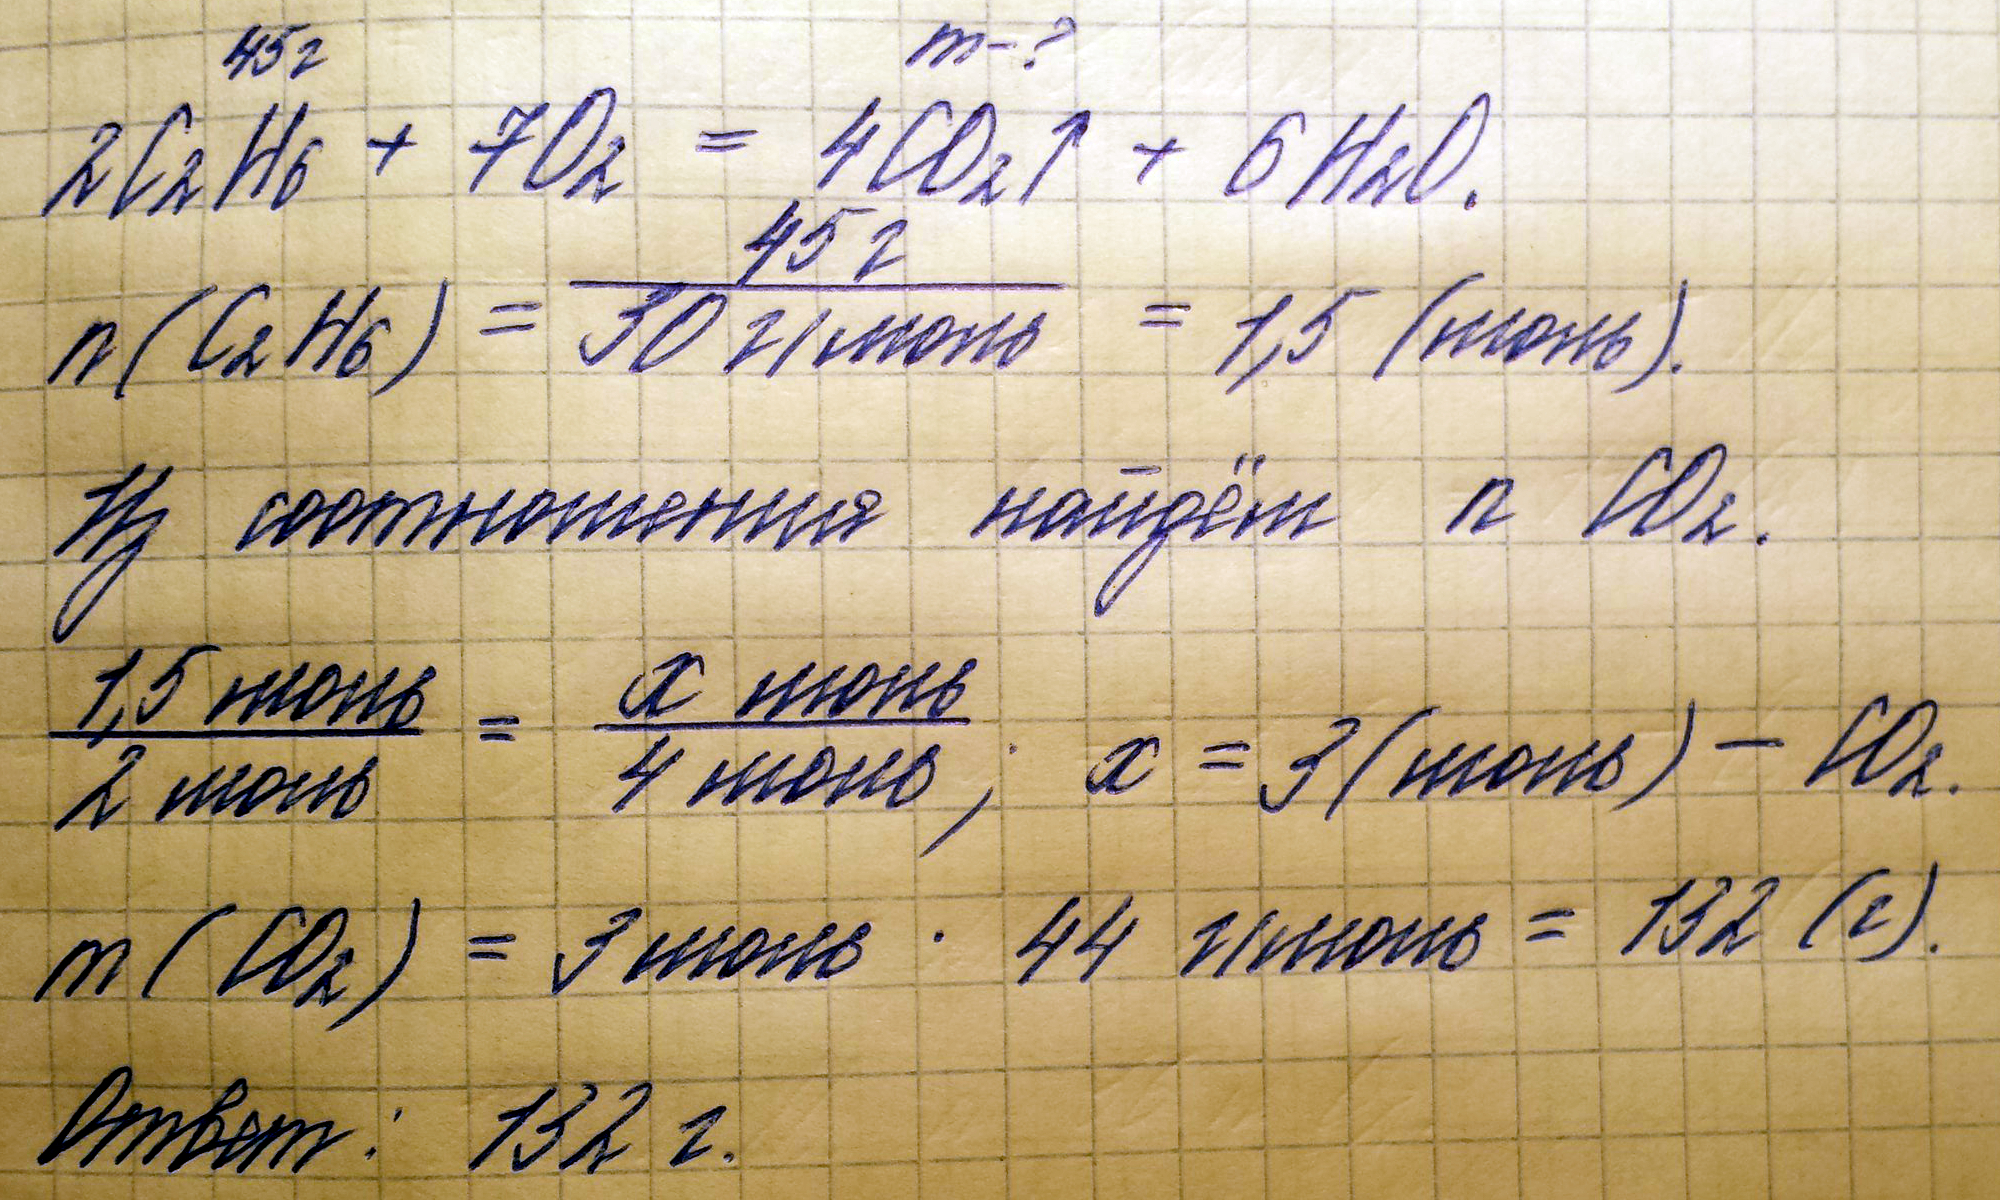 45г m-?
2C₂H₆ + 7O₂ = 4CO₂↑ + 6H₂O.
n(C₂H₆) = 45г / 30 г/моль = 1,5 (моль).
Из соотношения найдём n CO₂.
1,5 моль / 2 моль = x моль / 4 моль; x = 3 (моль) – CO₂.
m(CO₂) = 3 моль · 44 г/моль = 132 (г).
Ответ: 132 г.